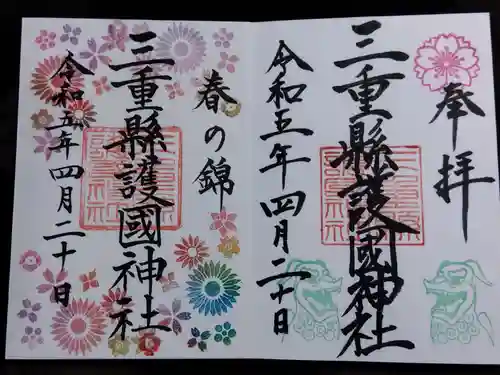 奉拝
三重縣護國神社
令和五年四月二十日
春の錦
三重縣護國神社
令和五年四月二十日